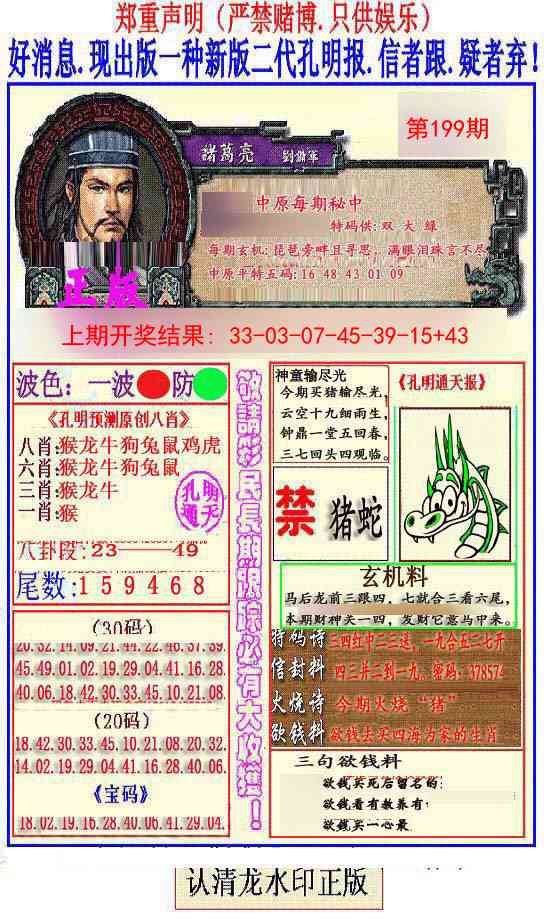 郑重声明（严禁赌博.只供娱乐）
好消息.现出版一种新版二代孔明报.信者跟.疑者弃！
諸葛亮
第199期
中原每期秘中
特码供:双 大 綠
每期玄机:琵琶旁畔且寻思，满眼泪珠言不尽
中原平特五码:16 48 43 01 09
正版
上期开奖结果：33-03-07-45-39-15+43
波色：一波 防
《孔明预测原创八肖》
八肖:猴龙牛狗兔鼠鸡虎
六肖:猴龙牛狗兔鼠
三肖:猴龙牛
一肖:猴
孔明
通天
八卦段:23——49
尾数:159468
(30码)
20.32.14.09.21.44.22.46.37.39.
45.49.01.02.19.29.04.41.16.28.
40.06.18.42.30.33.45.10.21.08.
(20码)
18.42.30.33.45.10.21.08.20.32.
14.02.19.29.04.41.16.28.40.06.
《宝码》
18.02.19.16.28.40.06.41.29.04.
敬請彩民長期跟踪必有大收獲！
神童输尽光
今期买猪输尽光，
云空十九细雨生，
钟鼎一堂五回春，
三七回头四观临。
《孔明通天报》
禁 猪蛇
玄机料
马后龙前三跟四，七就合三看六尾，
本期财神关一四，发财它意马中来。
特码诗 三四红中二三送，一九合五二七开
信封料 四三并二到一九。密码：378574
火烧诗 今期火烧“猪”
欲钱料 欲钱去买四海为家的生肖
三句欲钱料
欲钱买死后留名的：
欲钱看有教养有：
欲钱买一心最
认清龙水印正版